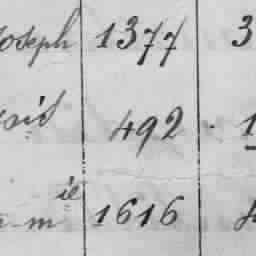 Joseph 1377 3
492 1
m ie 1616